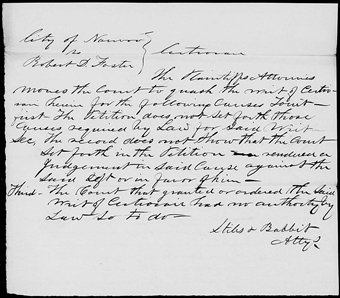 City of Nauvoo
vs
Robert D. Foster
Certiorari
The Plaintiffs Attornies
moves the Court to quash the writ of Certio-
rari herein for the following Causes Towit-
first The Petition does not set forth those
Causes required by Law for said Writ-
Sec, the record does not show that the Court
Set forth in the Petition rendered a
Judgement in said Cause against the
said Deft or in favor of him-
Third- The Court that granted or ordered the said
Writ of Certiorari had no authority by
Law so to do-
Stiles & Babbit
Attys